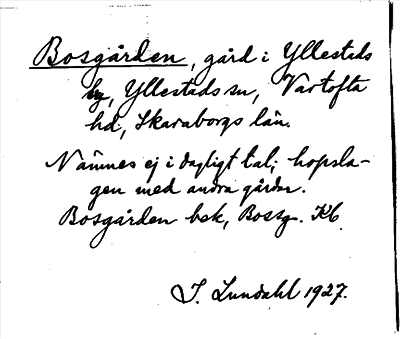 Bosgården, gård i Yllestads
by, Yllestads sn, Vartofta
hd, Skaraborgs län.
Nämnes ej i dagligt tal; hopsla-
gen med andra gårdar.
Bosgården bsk, Bossg. Kb.
I. Lundahl 1927.